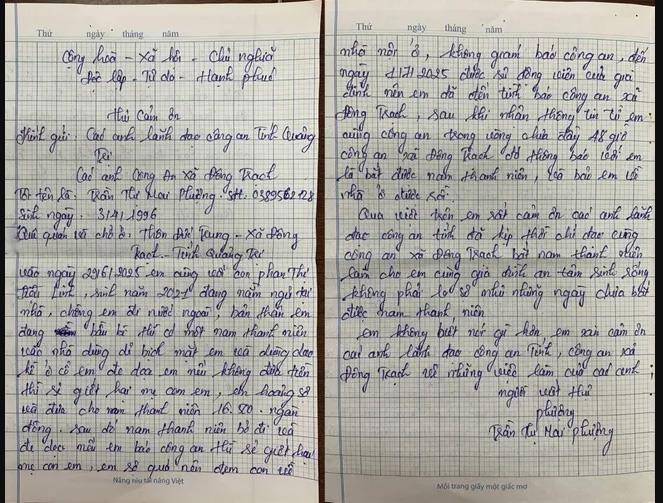 Thứ ngày tháng năm
Cộng hoà - xã hội - chủ nghĩa
Độc lập - Tự do - Hạnh phúc
Thư cảm ơn
Kính gửi: Các anh lãnh đạo công an Tỉnh Quảng
Trị
Các anh Công An xã Đông Trạch
Tôi tên là: Trần Thị Mai Phương. SĐT: 0389562128
Sinh ngày: 1996
Quê quán và chỗ ở: Thôn Đức Trung - xã Đông
Trạch - Tỉnh Quảng Trị
vào ngày 29/6/2025 em cùng với con phan Thị
Linh, sinh năm 2021 đang nằm ngủ tại
nhà, chồng em đi nước ngoài, bản thân em
đang bầu bí thì có một nam thanh niên
vào nhà dùng đồ bịch mặt em và dùng dao
kề ở cổ em đe doạ em nếu không đưa tiền
thì sẽ giết hai mẹ con em, em hoảng sợ
và đưa cho nam thanh niên 16.580. ngàn
đồng. sau đó nam thanh niên bỏ đi và
đe dọc nếu em báo công an thì sẽ giết hai
mẹ con em, em sợ quá nên đem con về
Nâng niu tài năng Việt
Thứ ngày tháng năm
nhà nội ở, không giám báo công an, đến
ngày 1/7/2025 được sự động viên của gia
đình nên em đã đến trình báo công an xã
Đông Trạch, sau khi nhận thông tin từ em
cùng công an trong vòng chưa đầy 48 giờ
công an xã Đông Trạch đã thông báo với em
là bắt được nam thanh niên, và bảo em về
nhà ở được rồi.
Qua viết trên em rất cảm ơn các anh lãnh
đạo công an tỉnh đã kịp thời chỉ đạo cùng
công an xã Đông Trạch bắt nam thanh niên
làm cho em cùng gia đình an tâm sinh sống
không phải lo sợ như những ngày chưa bắt
được nam thanh niên
em không biết nói gì hơn em xin cảm ơn
các anh lãnh đạo công an Tỉnh, công an xã
Đông Trạch về những việc làm của các anh
người viết thư
phương
Trần Thị Mai Phương
Mỗi trang giấy một giấc mơ